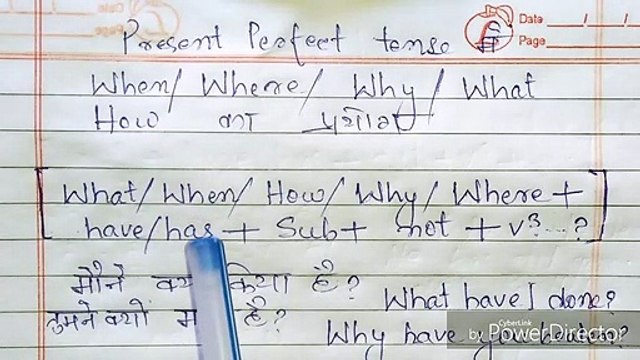 Date / /
Page
Present Perfect tense में
When/ Where/ Why/ What
How का प्रयोग
What/ When/ How/ Why/ Where +
have/has + Sub + not + v3...?
मैने क्या किया है?
What have I done?
तुमने क्यों है?
Why have you
by CyberLink PowerDirector